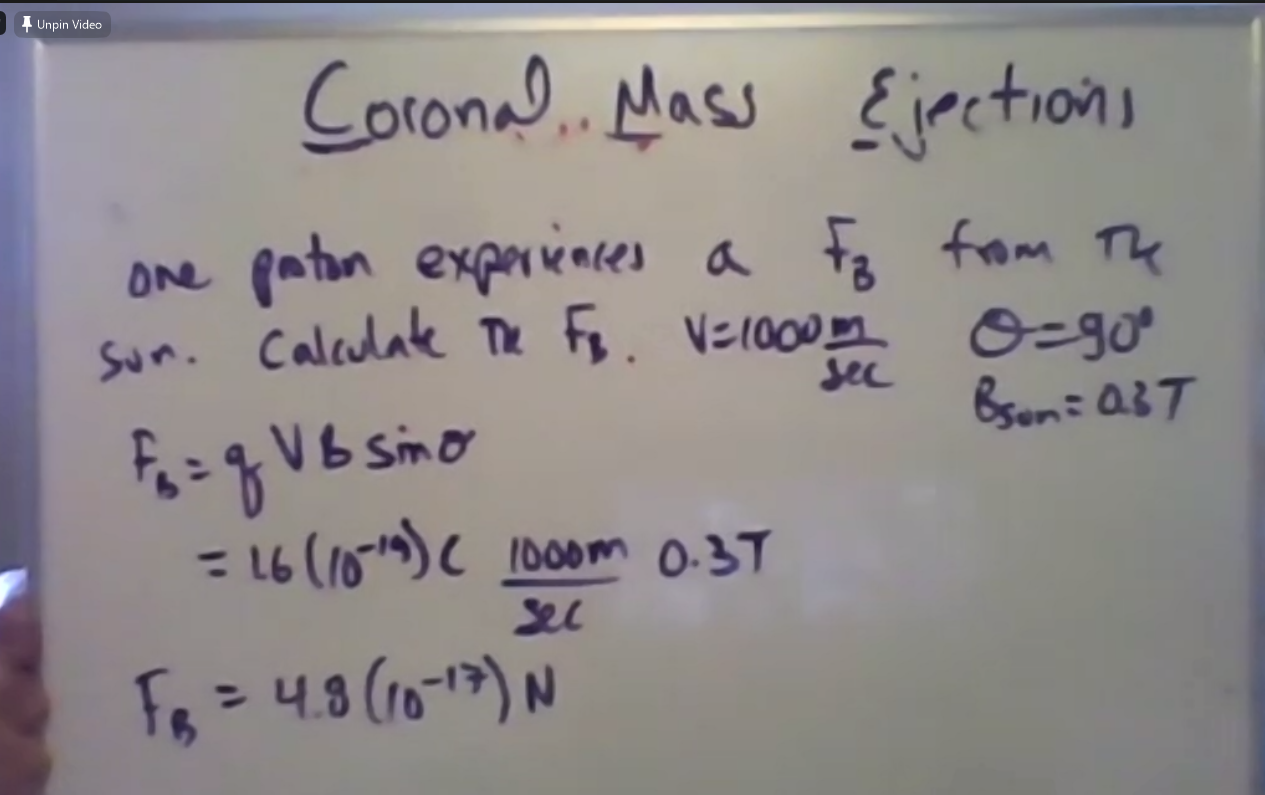 Unpin Video
Coronal Mass Ejections
one proton experiences a F_B from The
sun. Calculate The F_B. V=1000 m/sec θ=90°
B_sun = 0.3T
F_B = q V B sinθ
= 1.6 (10^-19) C 1000m/sec 0.3T
F_B = 4.8 (10^-17) N